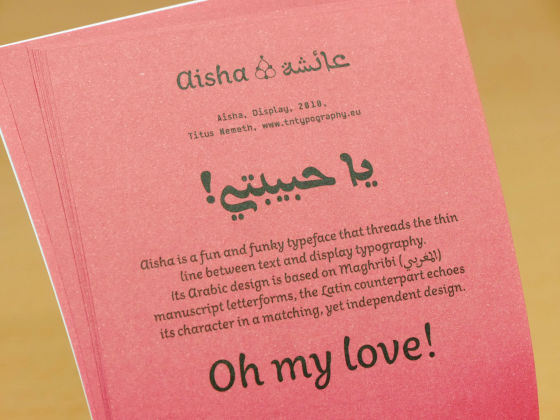 Aisha عائشة
Aisha, Display, 2010.
Titus Nemeth, www.tntypography.eu
يا حبيبتي!
Aisha is a fun and funky typeface that threads the thin
line between text and display typography.
Its Arabic design is based on Maghribi (المغربي)
manuscript letterforms, the Latin counterpart echoes
its character in a matching, yet independent design.
Oh my love!